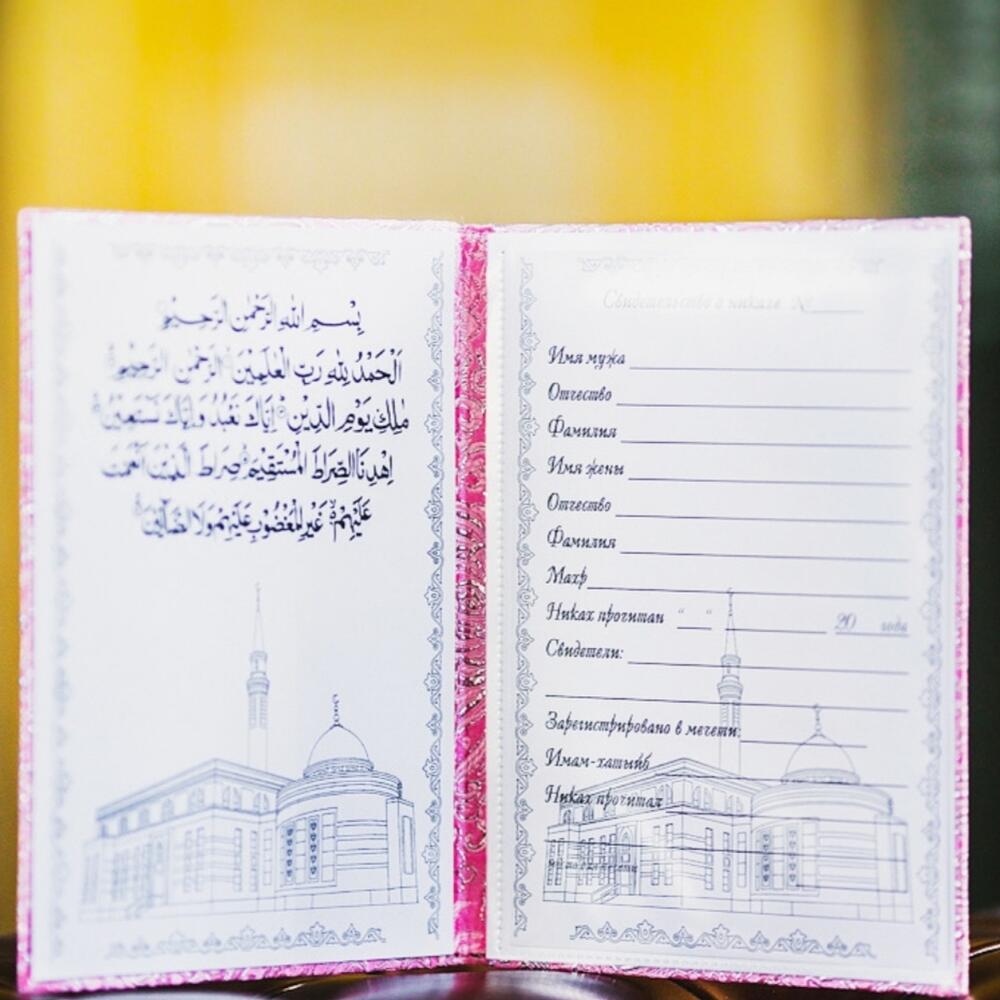 بِسْمِ اللهِ الرَّحْمٰنِ الرَّحِيْمِ
اَلْحَمْدُ لِلّٰهِ رَبِّ الْعٰلَمِيْنَ الرَّحْمٰنِ الرَّحِيْمِ
مٰلِكِ يَوْمِ الدِّيْنِ اِيَّاكَ نَعْبُدُ وَاِيَّاكَ نَسْتَعِيْنُ
اِهْدِنَا الصِّرَاطَ الْمُسْتَقِيْمَ صِرَاطَ الَّذِيْنَ اَنْعَمْتَ
عَلَيْهِمْ غَيْرِ الْمَغْضُوْبِ عَلَيْهِمْ وَلَا الضَّالِّيْنَ
Свидетельство о никахе №
Имя мужа
Отчество
Фамилия
Имя жены
Отчество
Фамилия
Махр
Никах прочитан “ “ 20 года
Свидетели:
Зарегистрировано в мечети:
Имам-хатыйб
Никах прочитал